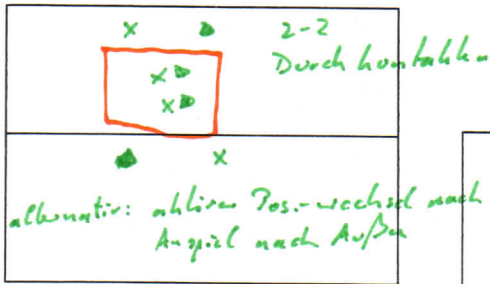 2-2
Durchkontakten
alternativ: aktiver Pos.-wechsel nach
Anspiel nach Außen